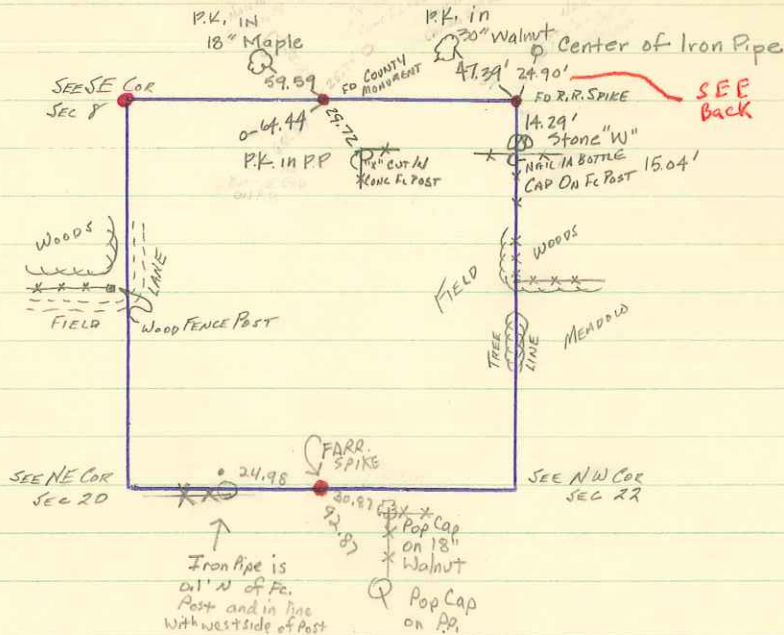 P.K. IN
18" Maple
P.K. in
30" Walnut
Center of Iron Pipe
59.59
FD COUNTY
MONUMENT
47.39'
24.90'
SEE
Back
SEE SE COR
SEC 8
FD R.R. SPIKE
64.44
29.72
P.K. in P.P
"X" CUT IN
CONC FC POST
14.29'
Stone "W"
NAIL IN BOTTLE
CAP ON FC POST 15.04'
WOODS
LANE
FIELD
WOOD FENCE POST
WOODS
FIELD
MEADOW
TREE
LINE
SEE NE COR
SEC 20
24.98
SPIKE
SEE NW COR
SEC 22
30.87
92.87
Pop Cap
on 18"
Walnut
Iron Pipe is
0.1' N of Fc.
Post and in line
with west side of Post
Pop Cap
on P.P.